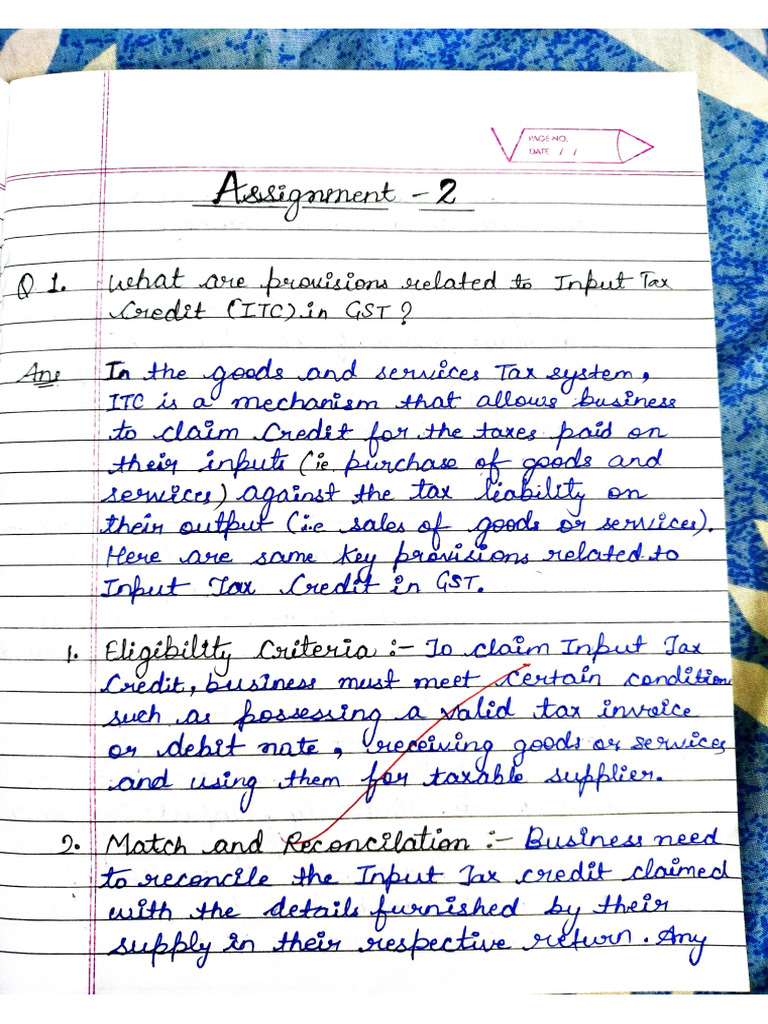 PAGE NO.
DATE / /
Assignment - 2
Q 1. What are provisions related to Input Tax
Credit (ITC) in GST?
Ans In the goods and services Tax system,
ITC is a mechanism that allows business
to claim Credit for the taxes paid on
their inputs (ie purchase of goods and
services) against the tax liability on
their output (i.e sales of goods or services).
Here are same key provisions related to
Input Tax Credit in GST.
1. Eligibility Criteria :- To claim Input Tax
Credit, business must meet certain condition
such as possessing a valid tax invoice
or debit nate, receiving goods or services
and using them for taxable supplier.
2. Match and Reconcilation :- Business need
to reconcile the Input Tax credit claimed
with the details furnished by their
supply in their respective return. Any